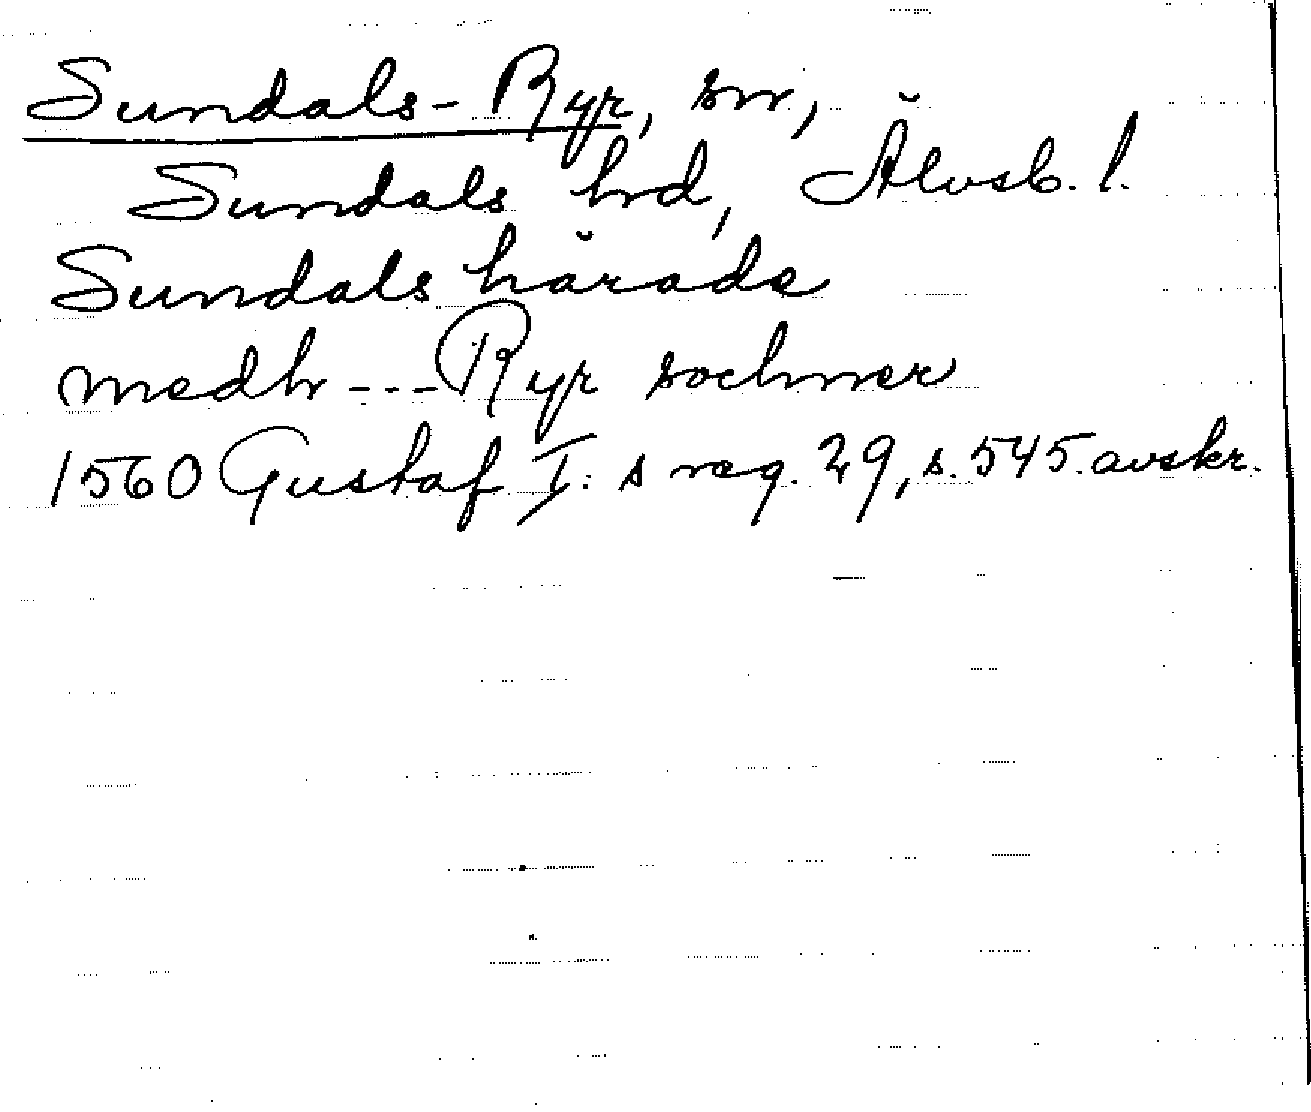 Sundals-Ryr, sn,
Sundals hrd, Älvsb. l.
Sundals härade
medh --- Ryr sochner
1560 Gustaf I:s reg. 29, s. 545. avskr.